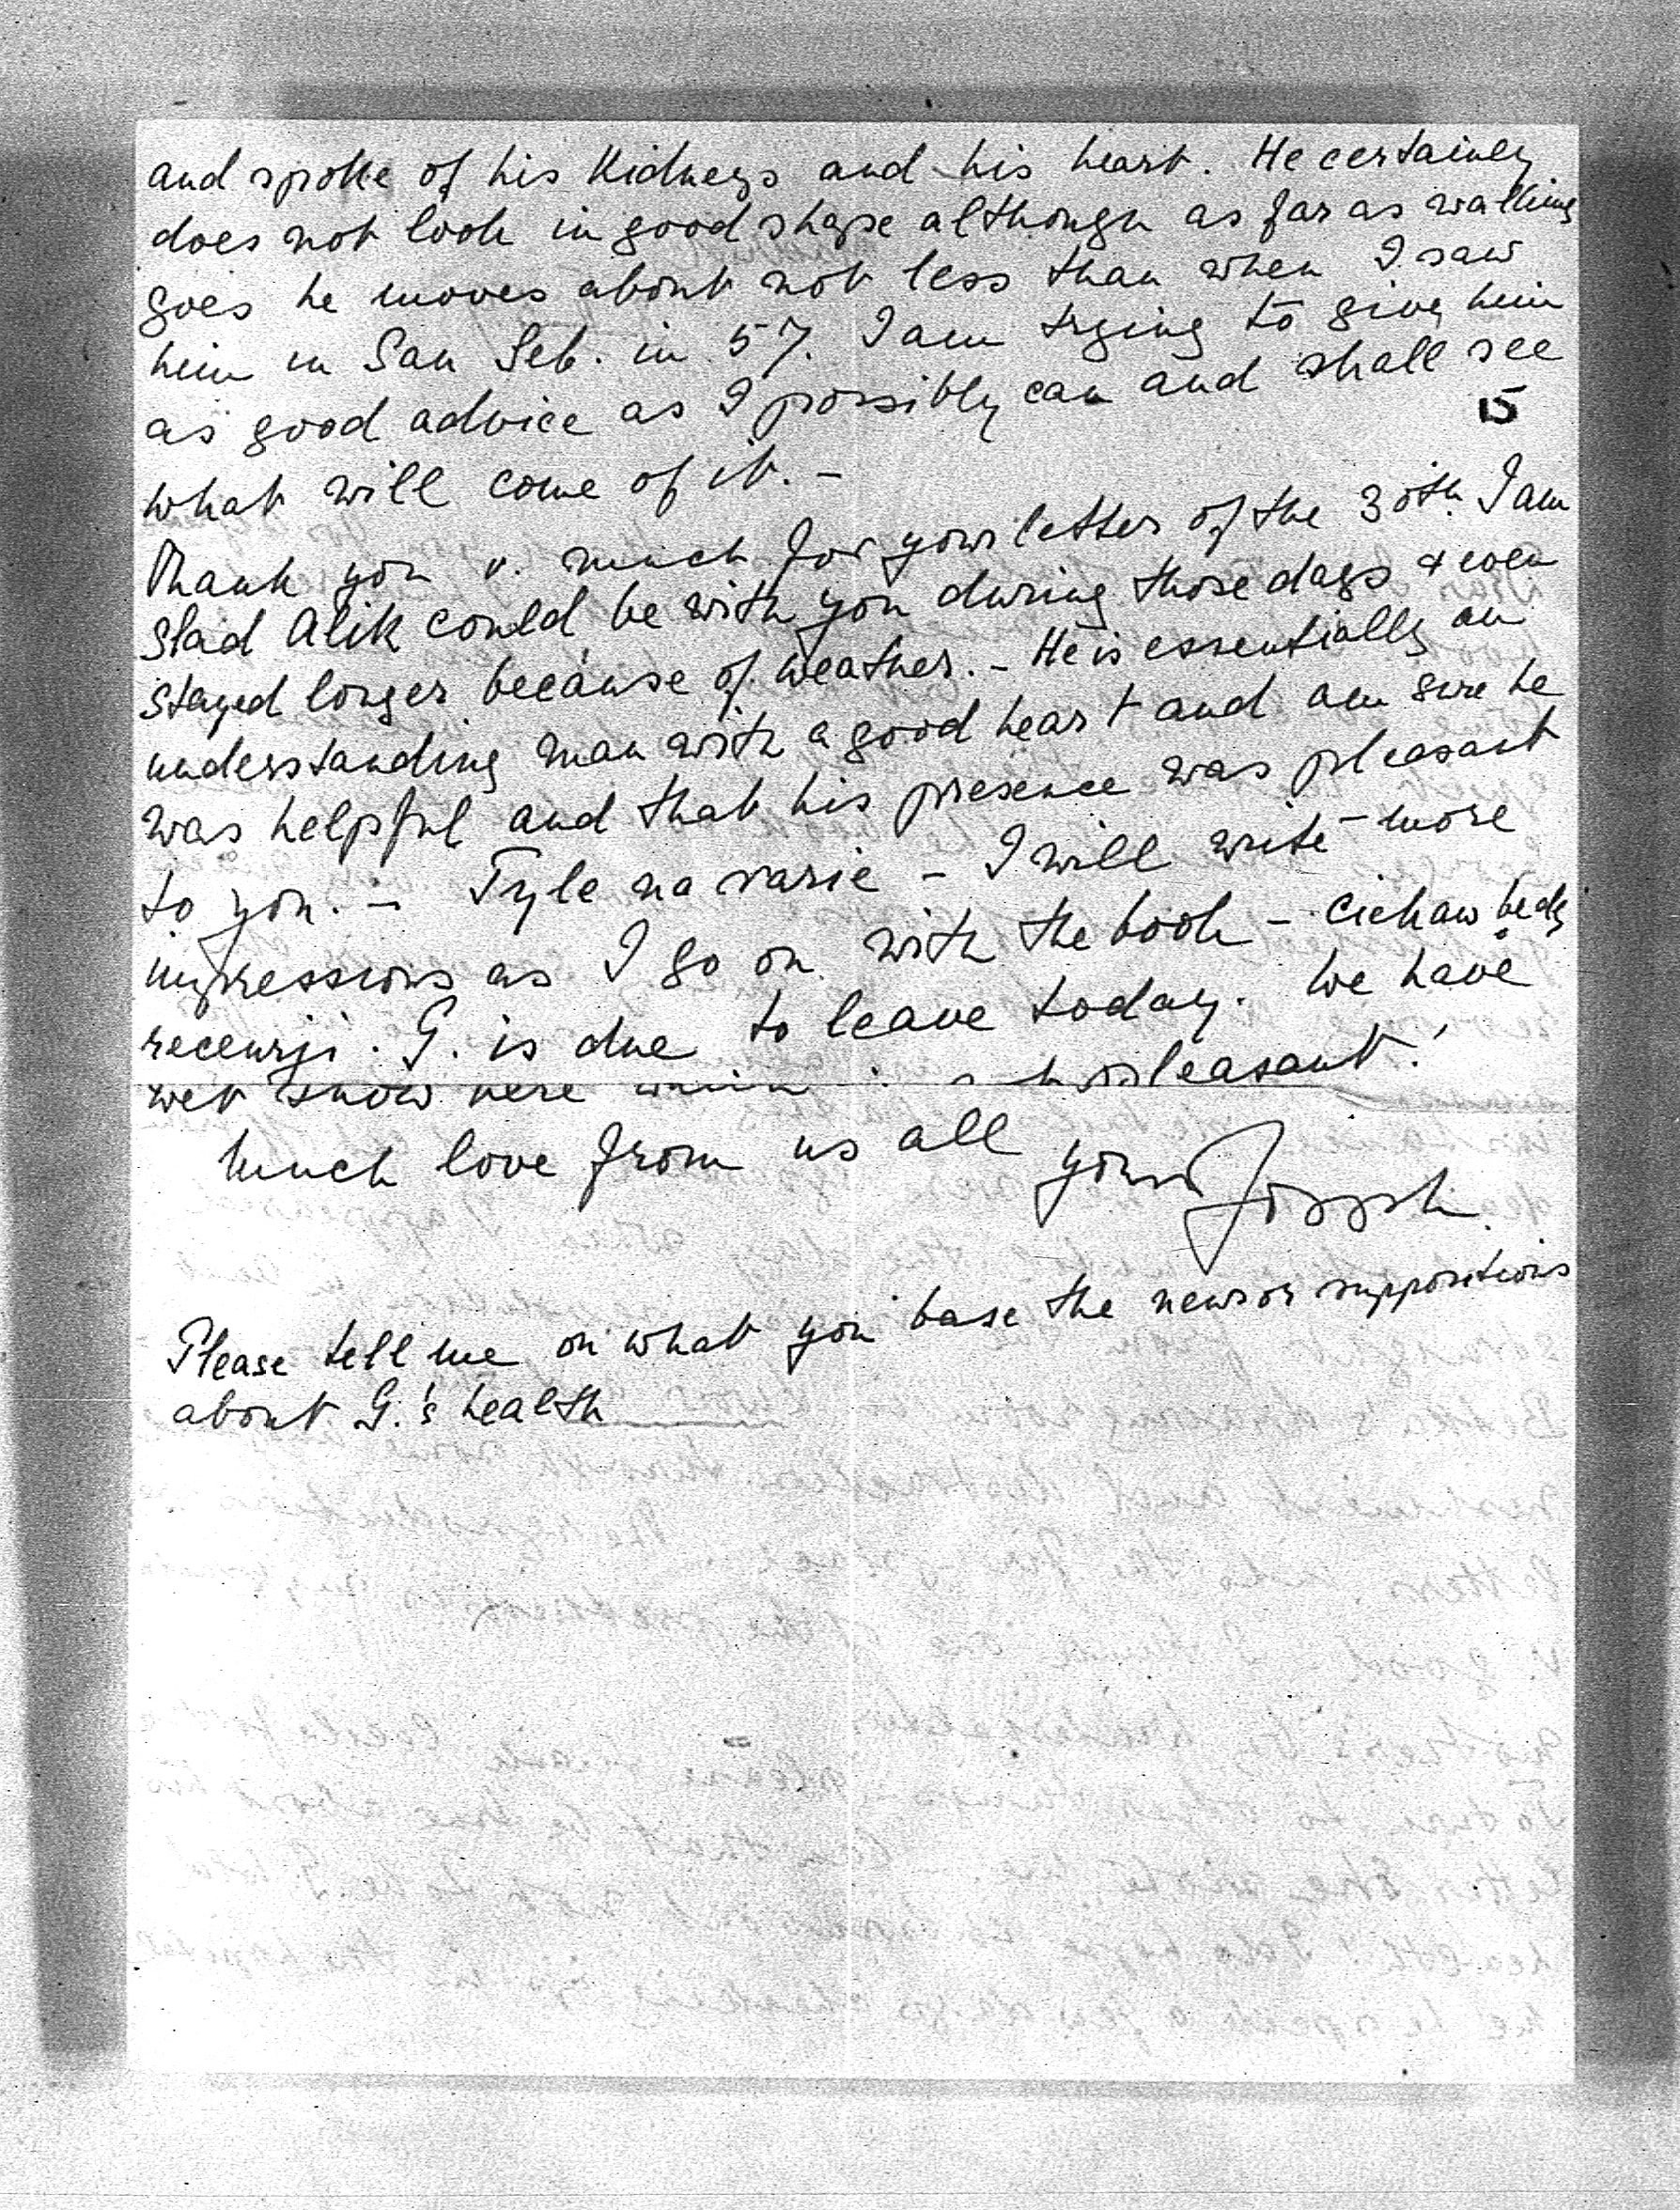 and spoke of his Kidneys and his heart. He certainly
does not look in good shape although as far as walking
goes he moves about not less than when I saw
him in San Seb. in 57. I am trying to give him
as good advice as I possibly can and shall see
15
what will come of it. –
Thank you v. much for your letter of the 30th. I am
glad Alik could be with you during those days & even
stayed longer because of weather. – He is essentially an
understanding man with a good heart and am sure he
was helpful and that his presence was pleasant
to you. – Tyle na razie – I will write more
impressions as I go on with the book – Ciekaw będę
recenzji. G. is due to leave today. We have
wet snow here which unpleasant!
Much love from us all yours Joseph.
Please tell me on what you base the news or suppositions
about G.'s health